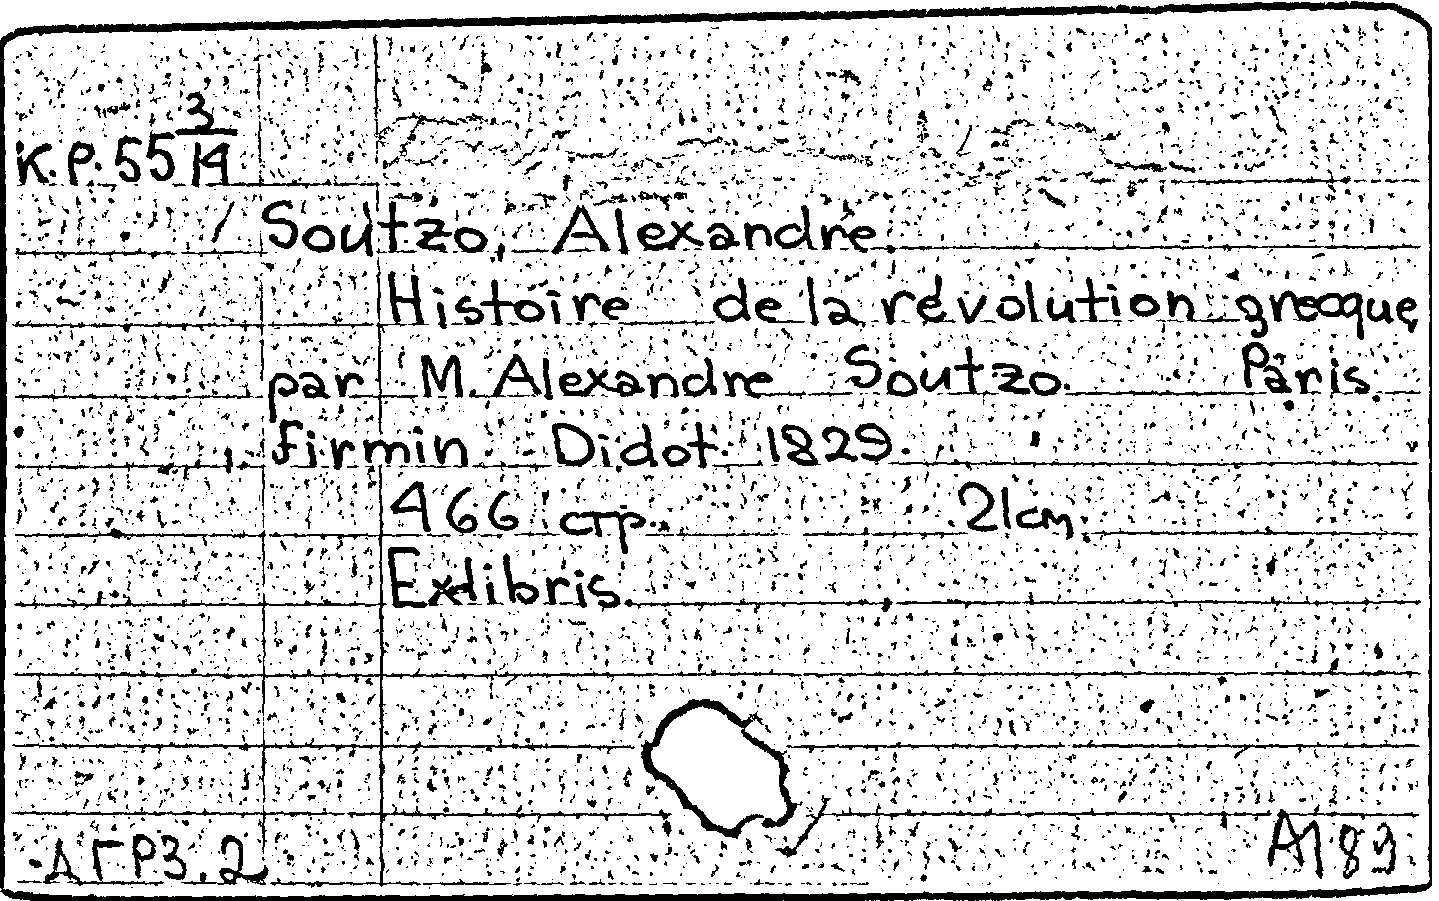 К.Р. 55 3/14
Soutzo, Alexandre.
Histoire de la révolution grecque,
par M. Alexandre Soutzo. Paris.
Firmin Didot. 1829.
466 стр. 21 cm.
Exlibris.
ДГРЗ.2 A183